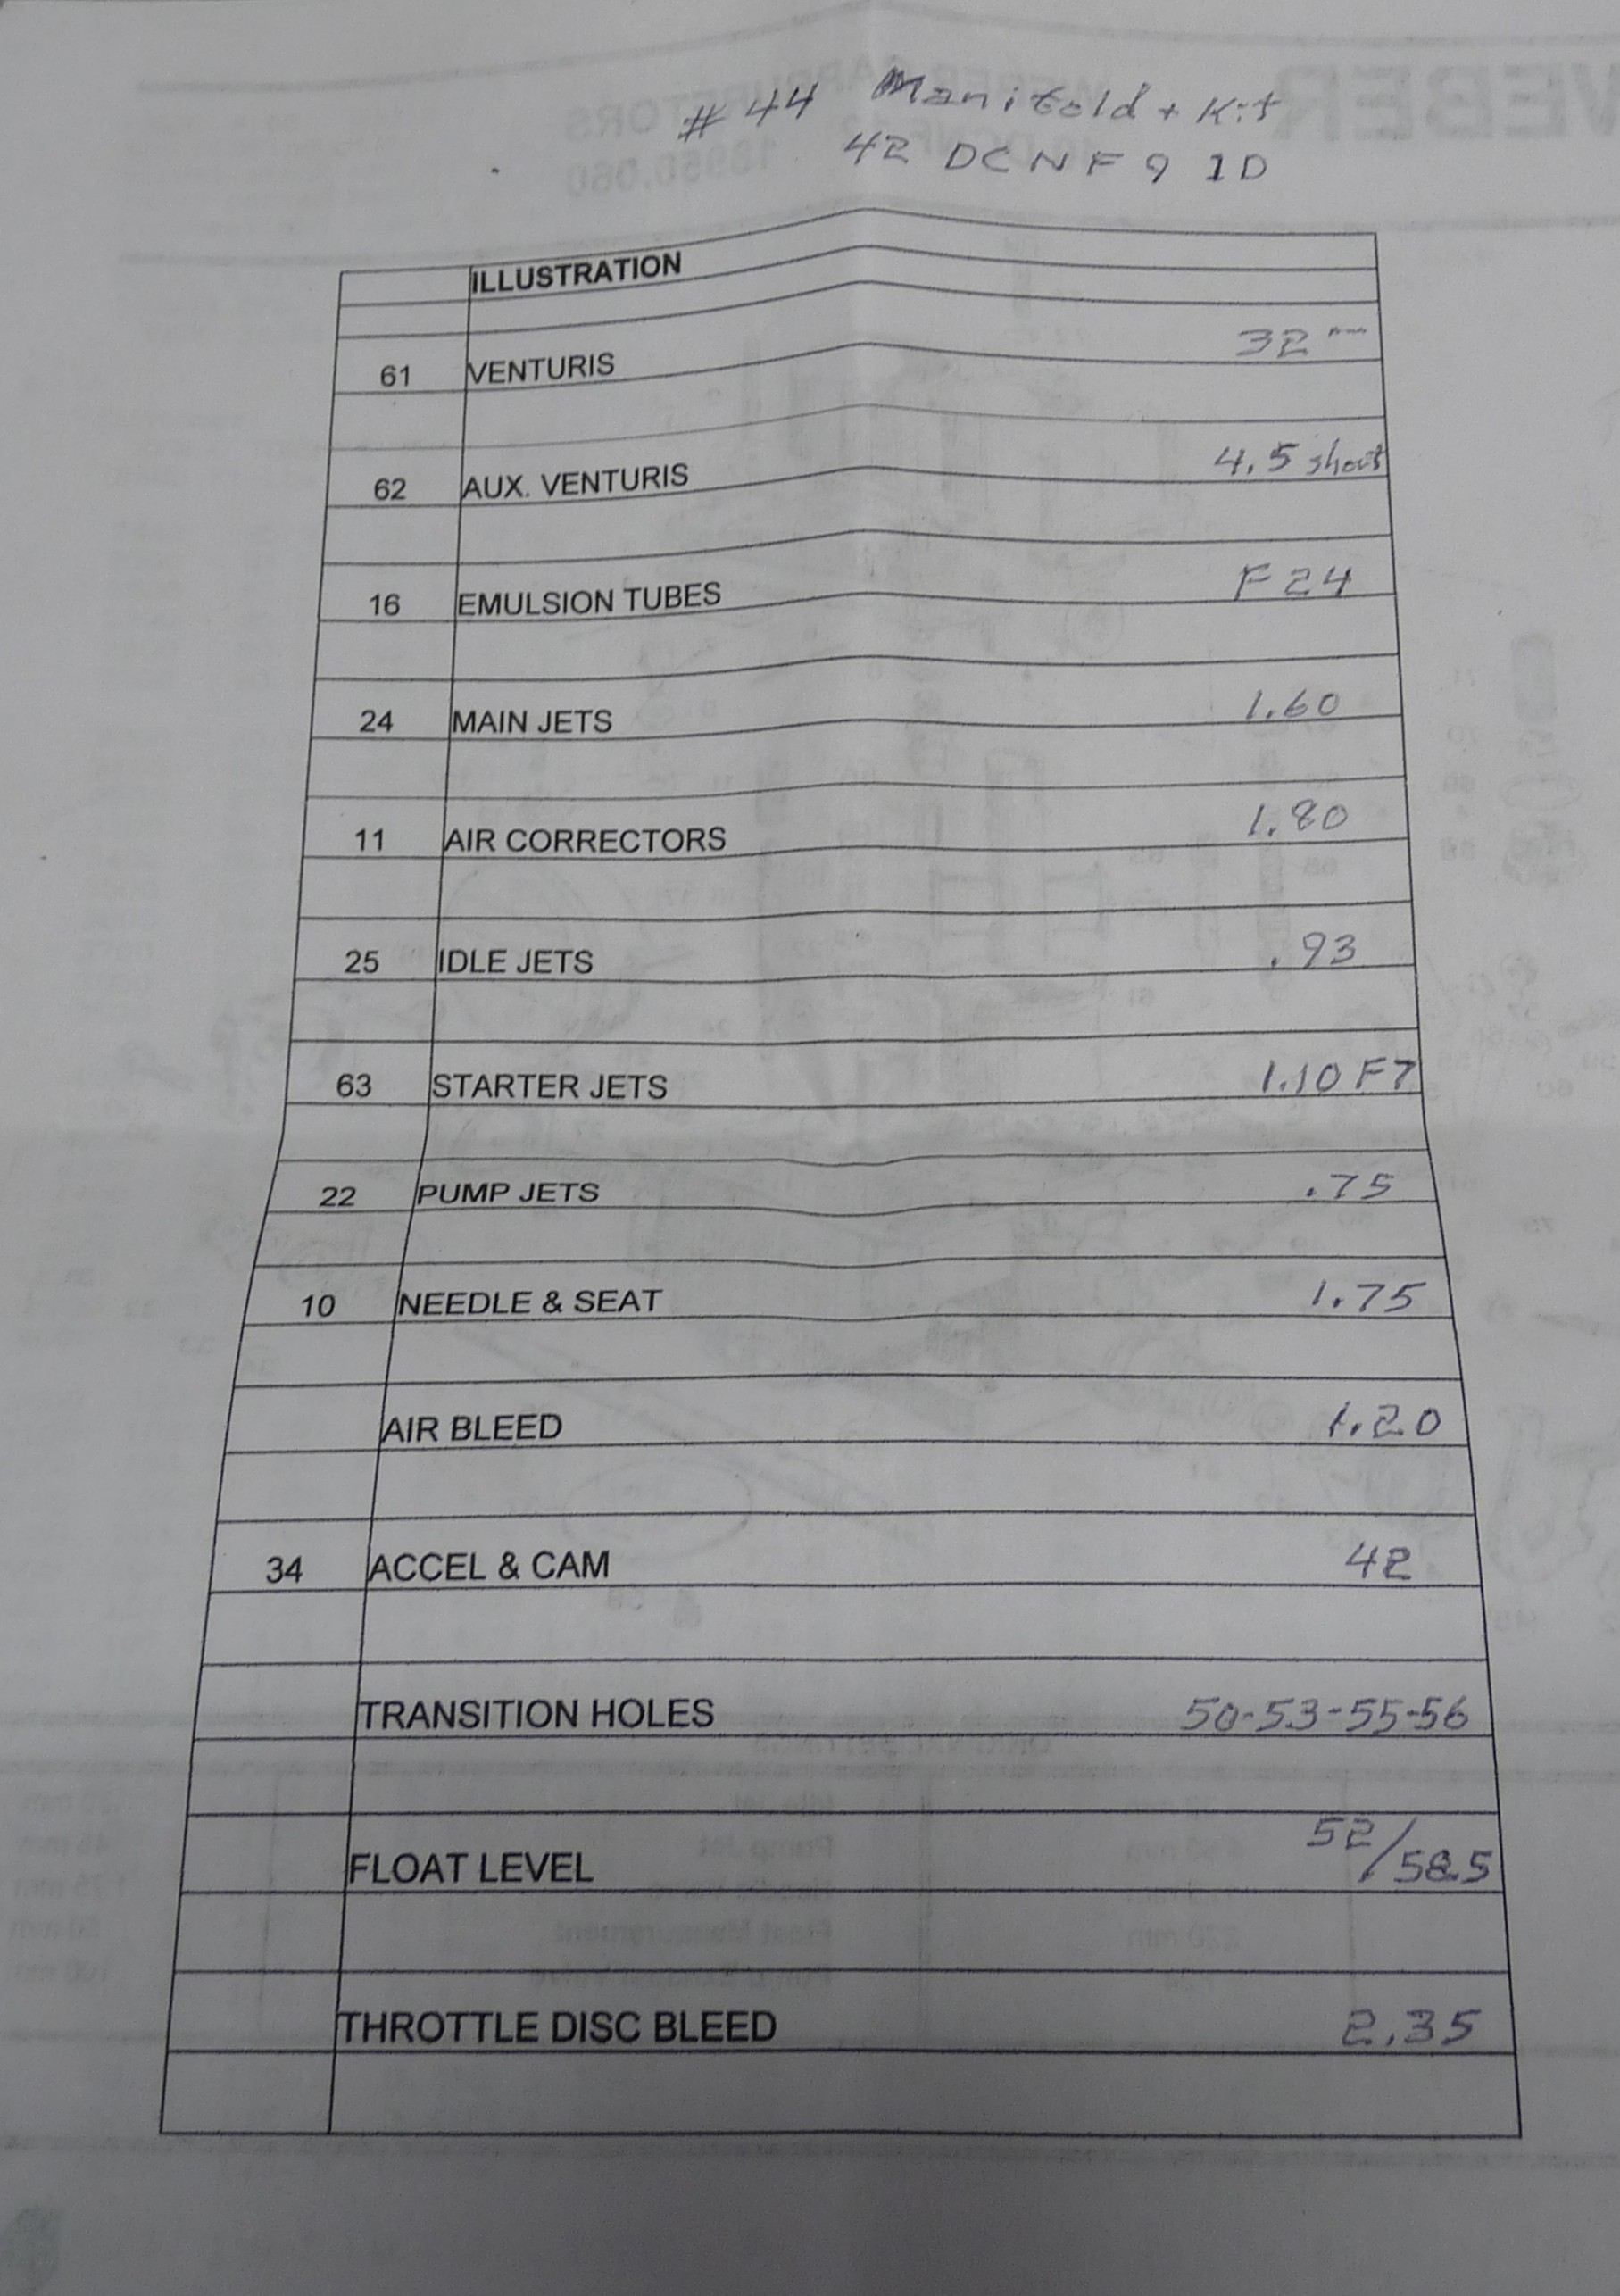 # 44 Manifold + Kit
42 DCNF 9 1D
ILLUSTRATION
61 VENTURIS 32 mm
62 AUX. VENTURIS 4.5 short
16 EMULSION TUBES F24
24 MAIN JETS 1.60
11 AIR CORRECTORS 1.80
25 IDLE JETS .93
63 STARTER JETS 1.10 F7
22 PUMP JETS .75
10 NEEDLE & SEAT 1.75
AIR BLEED 1.20
34 ACCEL & CAM 42
TRANSITION HOLES 50-53-55-56
FLOAT LEVEL 52/58.5
THROTTLE DISC BLEED 2.35